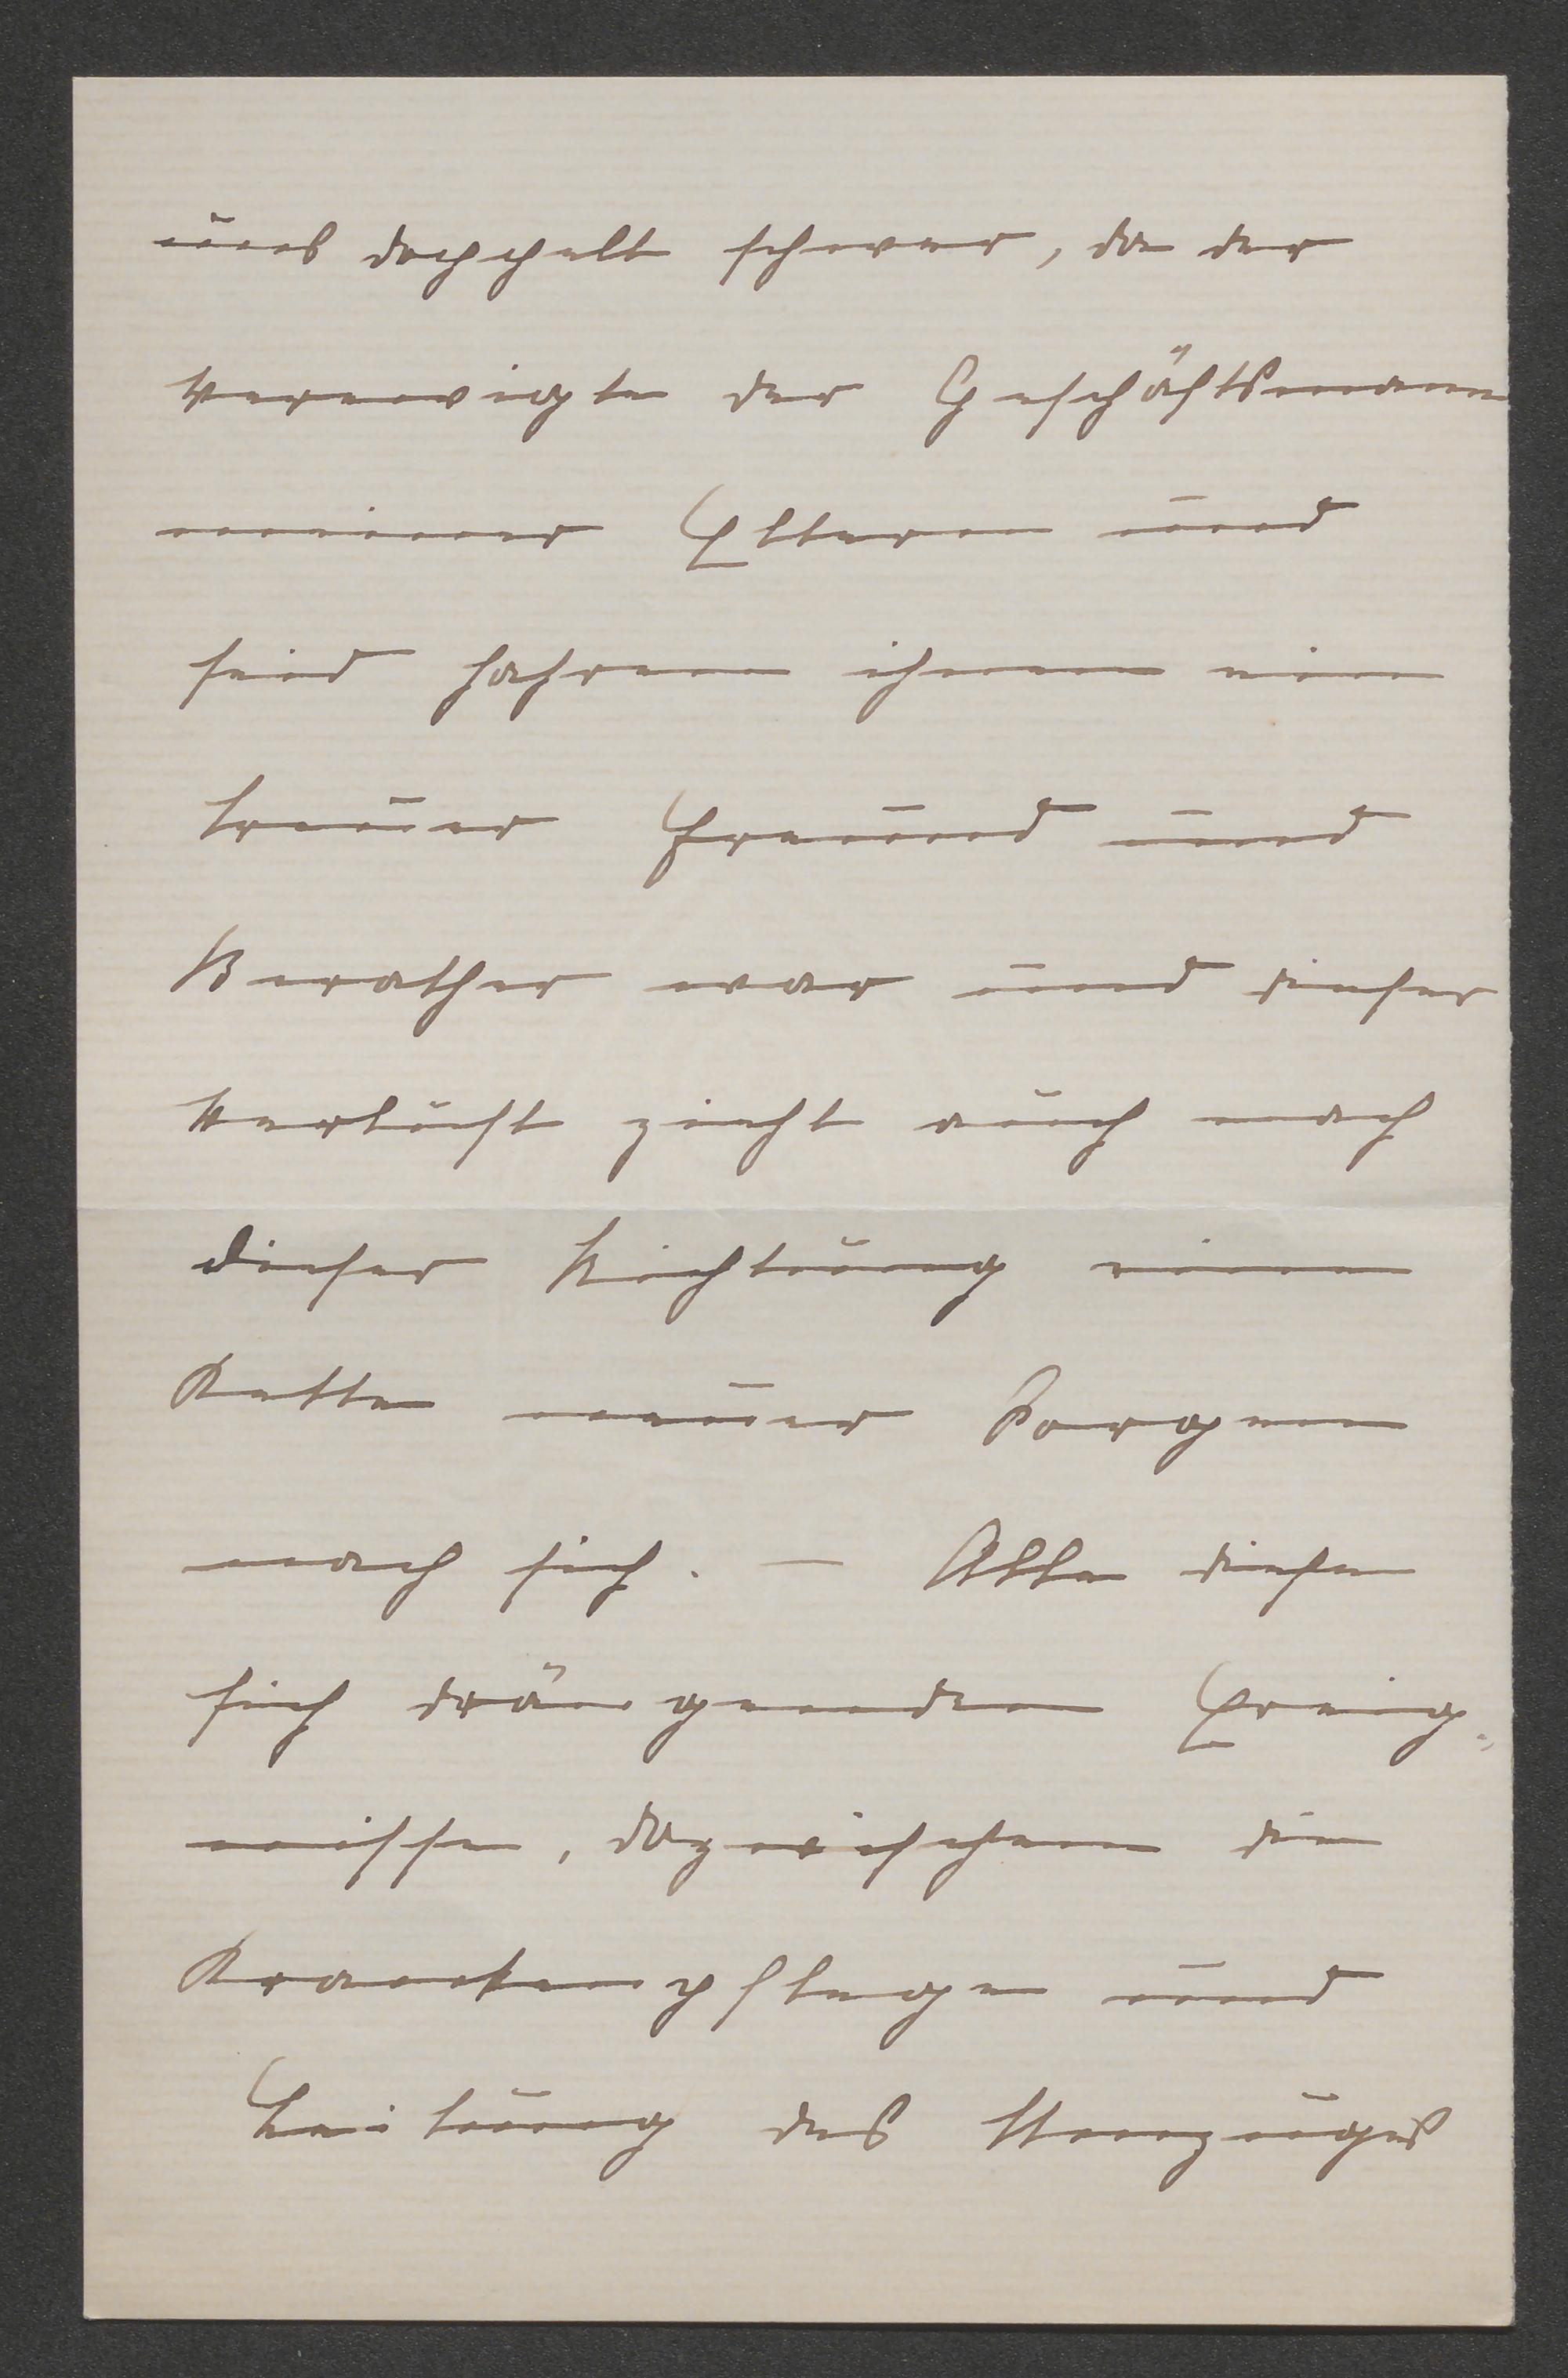 uns doppelt schwer, da der
Verewigte der Geschäftsmann
meiner Eltern und
seid Jahren ihnen ein
treuer Freund und
Berather war und dieser
Verlust zieht auch nach
dieser Richtung eine
Kette neuer Sorgen
nach sich. – Alle diese
sich drängenden Ereig-
nisse, dazwischen die
Krankenpflege und
Leitung des Umzuges